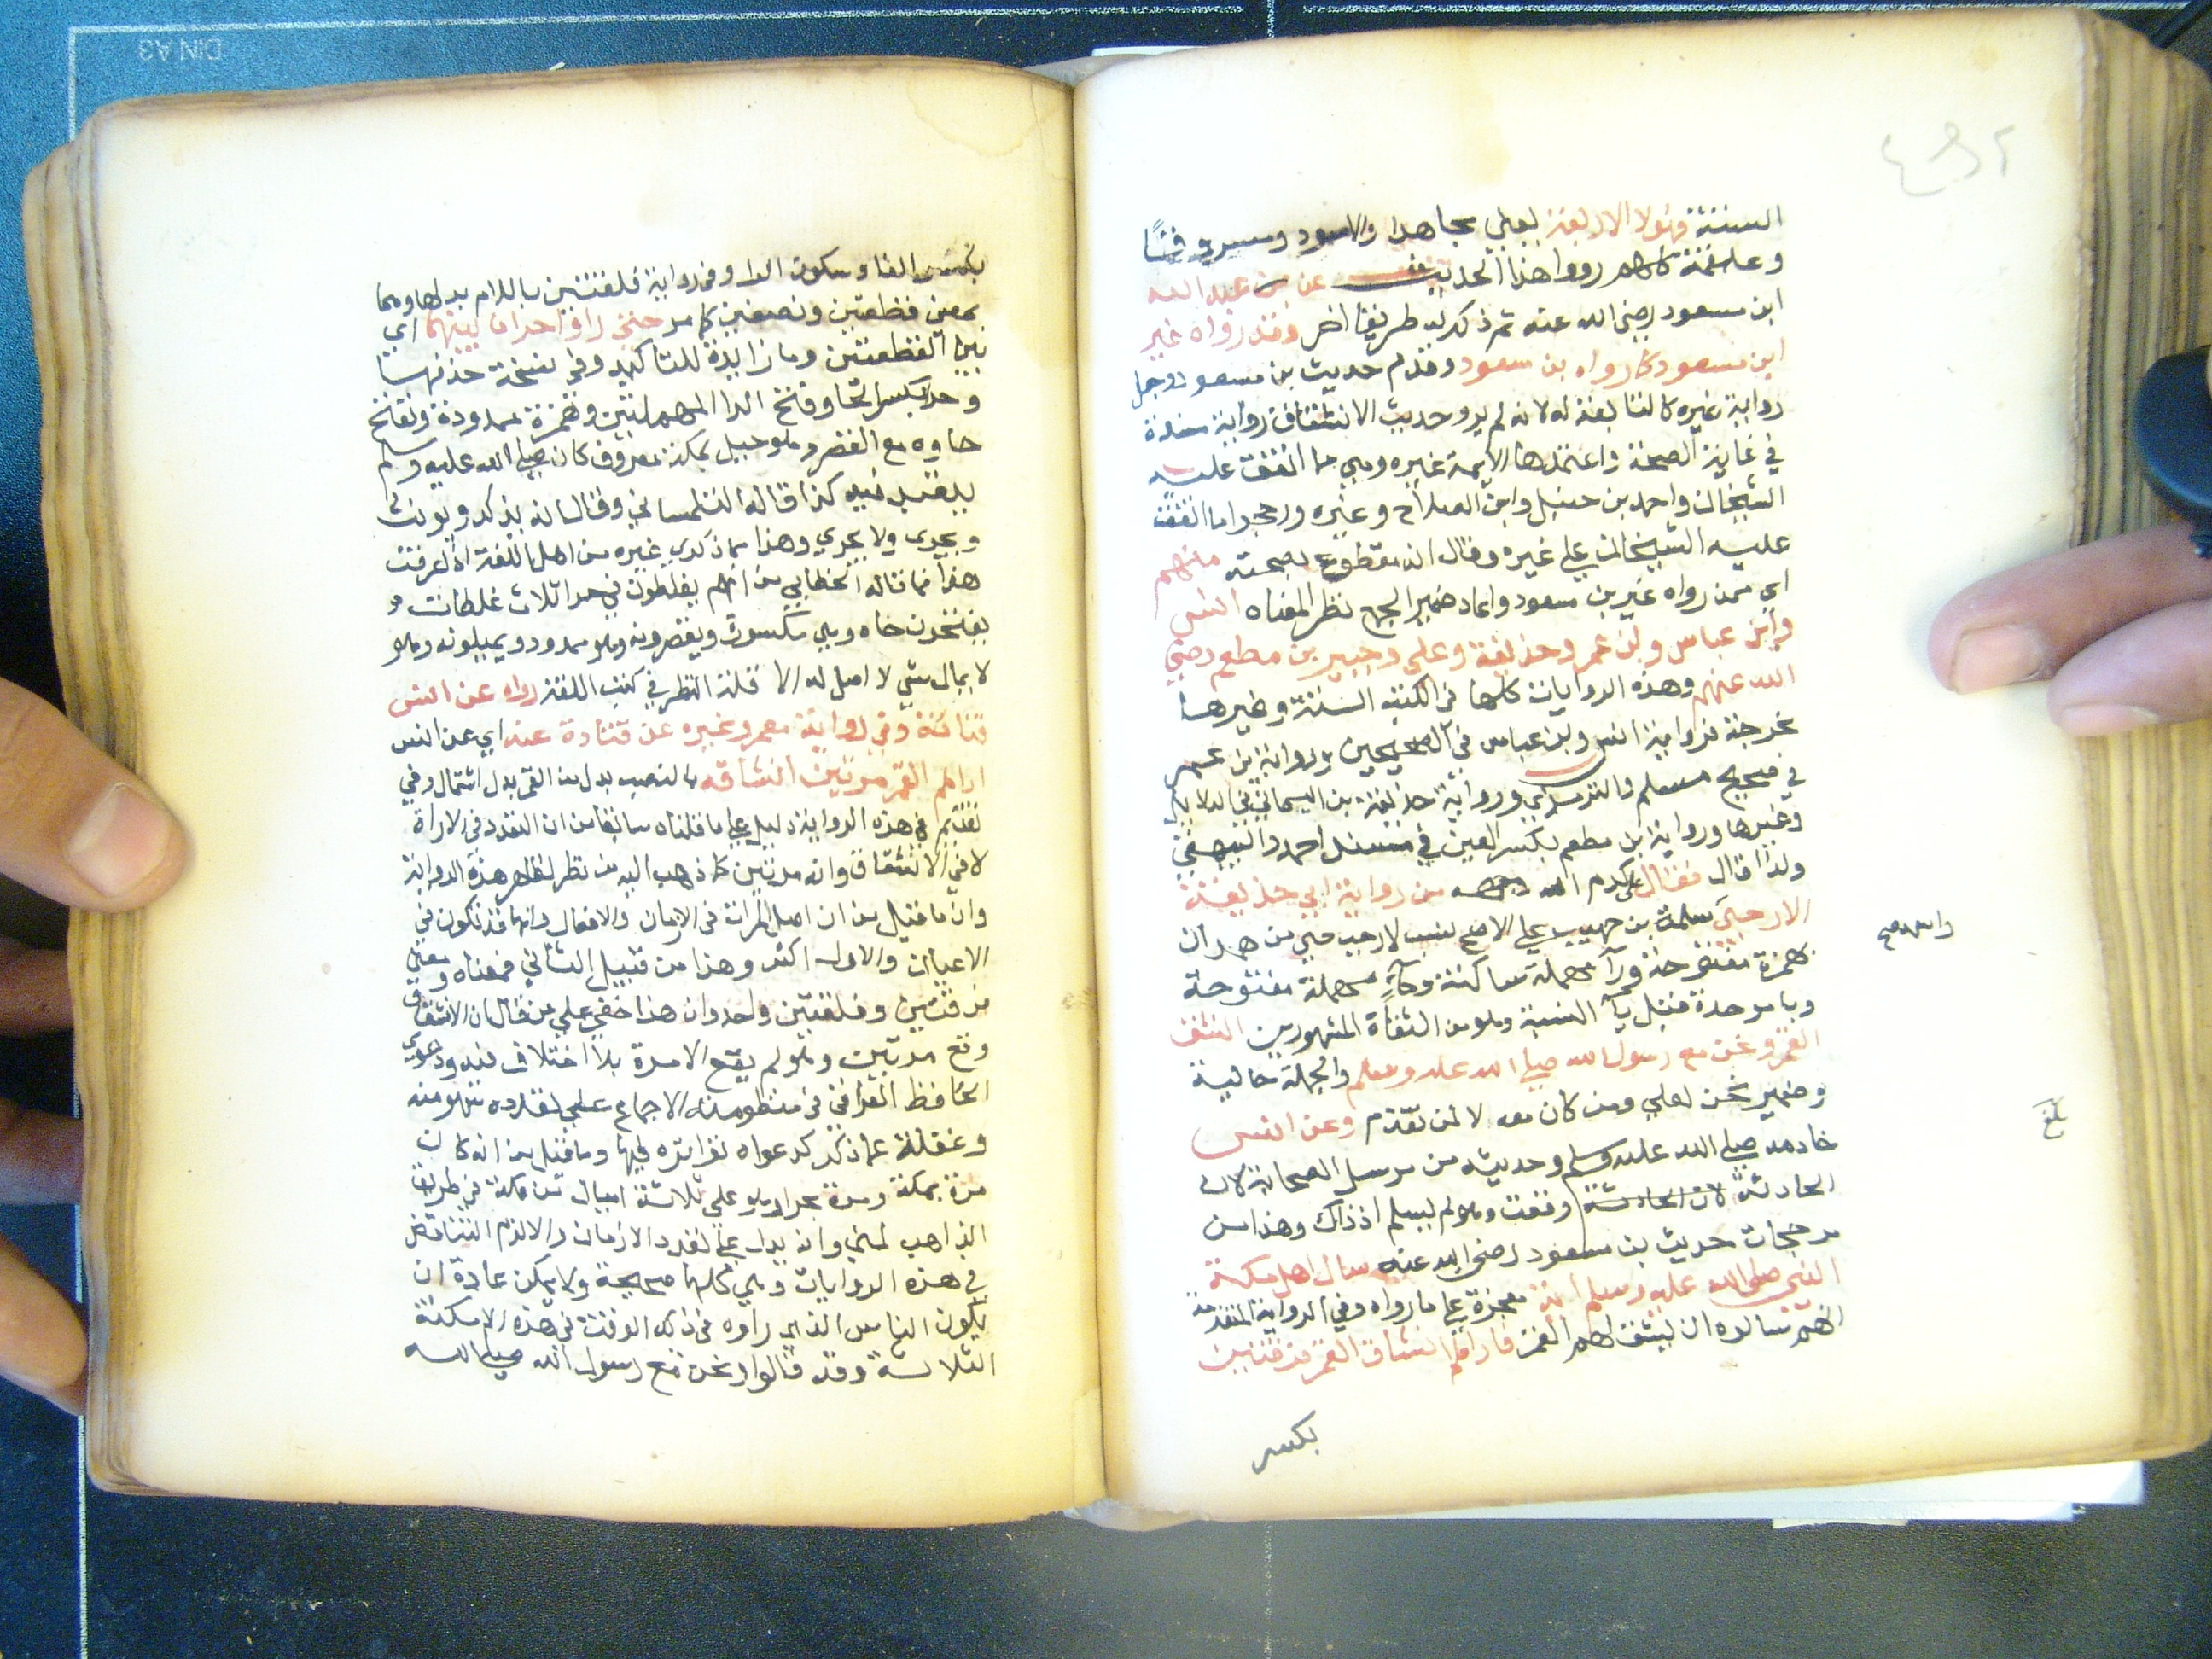 السنة فهولا الاربعة يعني مجاهدا والاسود ومسروقا
وعلقمة كلهم رووا هذا الحديث عن بن عبد الله
ابن مسعود رضي الله عنه ثم ذكر له طريقا اخر وقد رواه غير
ابن مسعود كما رواه بن مسعود وقدم حديث بن مسعود وجعل
رواية غيره كالتابعة له لانه لم يرو حديث الانشقاق رواية معتدة
في غاية الصحة واعتمدها الايمة غيره وهي ما اتفق عليه
الشيخان واحمد بن حنبل وابن الصلاح وغيره ورجحوا ما اتفق
عليه الشيخان علي غيره وقال انه مقطوع بصحته منهم
اي ممن رواه غير بن مسعود واعاد ضمير الجمع نظرا لمعناه انس
وابن عباس وابن عمر وحذيفة وعلي وجبير بن مطعم رضي
الله عنهم وهذه الروايات كلها في الكتب الستة وغيرها
مخرجة فرواية انس وابن عباس في الصحيحين ورواية ابن عمر
في صحيح مسلم والترمذي ورواية حذيفة بن اليمان في الدلايل
وغيرها ورواية بن مطعم بكسر العين في مسند احمد والبيهقي
ولذا قال فقال علي كرم الله وجهه من رواية ابي حذيفة
الارحبي سلمة بن صهيب علي الاصح نسب لارحب حي من همدان
بهمزة مفتوحة ورآ مهملة ساكنة وحآء مهملة مفتوحة
وبا موحدة قبل يآ النسبة وهو من الثقاة المشهورين انشق
القمر ونحن مع رسول الله صلي الله عليه وسلم والجملة حالية
وضمير نحن لعلي ومن كان معه لا لمن تقدم وعن انس
خادمه صلي الله عليه وسلم وحديثه من مرسل الصحابة لان
الحادثة لان الحادثة وقعت وهو لم يسلم اذ ذاك وهذا من
مرجحات حديث بن مسعود رضي الله عنه سال اهل مكة
النبي صلي الله عليه وسلم اية معجزة علي ما رواه وفي الرواية المتقدمة
انهم سالوه ان يشق لهم القمر فاراهم انشقاق القمر فرقتين
بكسر
بلغ
بكسر الفا وسكون الرا وفي رواية فلقتين باللام بدلها وهما
بمعني قطعتين ونصفين كما مر حتي راوا حرا بينهما اي
بين القطعتين وما زايدة للتاكيد وفي نسخة حذفها
وحرا بكسر الحا وفتح الرا المهملتين وهمزة ممدودة وتفتح
حاوه مع القصر وهو جبل بمكة معروف كان صلي الله عليه وسلم
يتعبد فيه كذا قاله التلمساني وقال انه يذكر ويونث
ويجري ولا يجري وهذا مما ذكره غيره من اهل اللغة اذا عرفت
هذا فما قاله الخطابي من انهم يغلطون في حرا ثلاث غلطات و
يفتحون حاه وهي مكسورة ويقصرونه وهو ممدود ويميلونه وهو
لا يمال شي لا اصل له الا قلة النظر في كتب اللغة رواه عن انس
قتادة وفي رواية معمر وغيره عن قتادة عنه اي عن انس
اراهم القمر مرتين انشاقه بالنصب بدل من القمر بدل اشتمال وفي
لفظهم في هذه الرواية دليل علي ما قلناه سابقا من ان التعدد في الاراة
لا في الانشقاق وانه مرتين كما ذهب اليه من نظر لظاهر هذه الرواية
وان ما قيل من ان اصل المرات في الازمان والافعال وانها قد تكون في
الاعيان والاول اكثر وهذا من قبيل الثاني فمعناه ومعني
فرقتين وفلقتين واحد وان هذا خفي علي من قال ان الانشقاق
وقع مرتين وهو لم يقع الا مرة بلا اختلاف فيه ودعوي
الحافظ العراقي في منظومته الاجماع علي تعدده سهو منه
وغفلة عما ذكر كدعواه تواتره فيها وما قيل من انه كان
مرة بمكة ومرة بحرا وهو علي ثلاثة اميال من مكة في طريق
الذاهب لمني وانه يدل علي تعدد الازمان والا لزم التناقض
في هذه الروايات وهي كلها صحيحة ولا يمكن عادة ان
يكون الناس الذين راوه في ذلك الوقت في هذه الامكنة
الثلاثة وقد قالوا ونحن مع رسول الله صلي الله